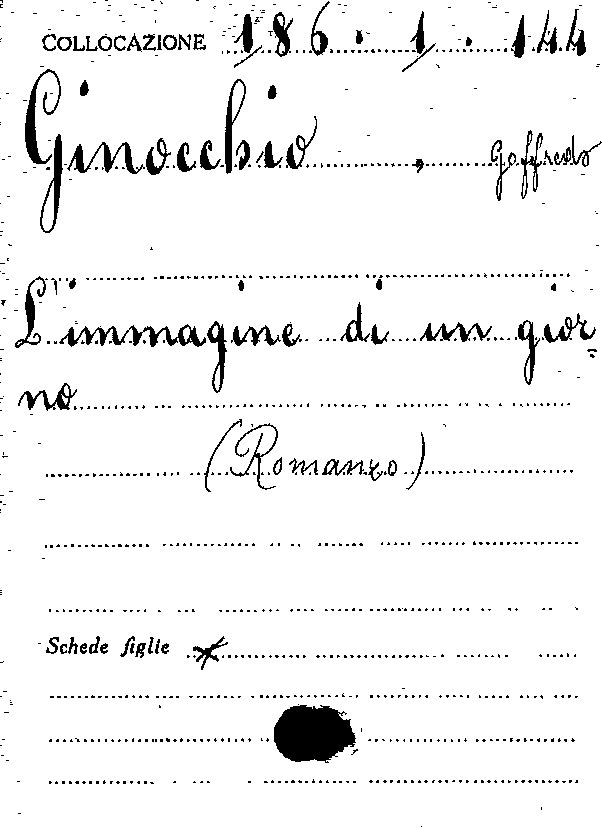 COLLOCAZIONE 186.1.144
Ginocchio, Goffredo
L'immagine di un gior=
no
(Romanzo)
Schede figlie